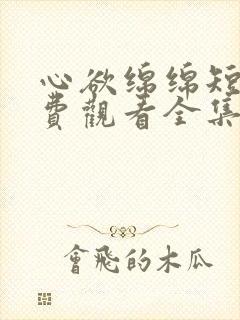 心欲绵绵短
費觀看全集
會飛的木瓜